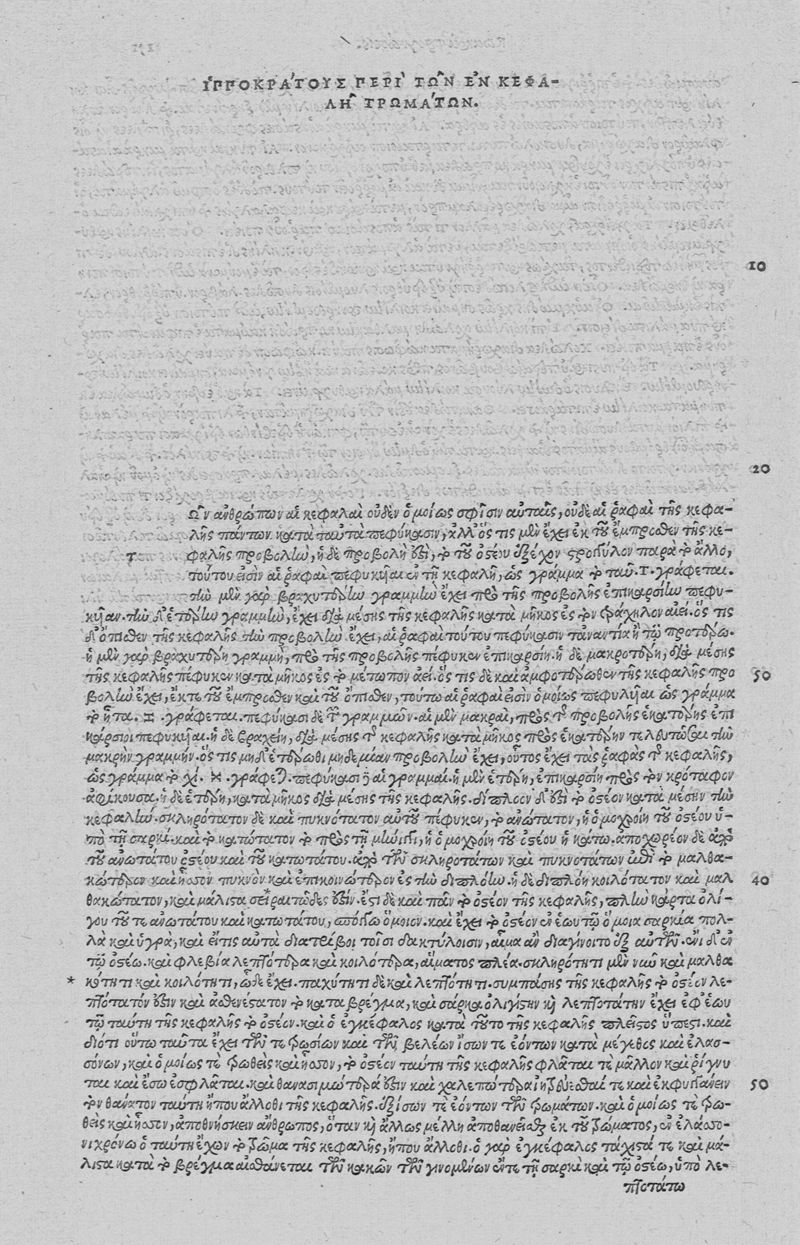 ἹΠΠΟΚΡΆΤΟΥΣ ΠΕΡῚ ΤΩ͂Ν ἘΝ ΚΕΦΑ-
ΛΗ͂ ΤΡΩΜΆΤΩΝ.
10
20
Ω͂ν ἀνθρώπων αἱ κεφαλαὶ οὐδὲν ὁμοίως σφίσιν αὐταῖς, οὐδὲ αἱ ῥαφαὶ τῆς κεφα-
λῆς πάντων κατὰ ταὐτὰ πεφύκασιν, ἀλλ' ὅς τις μὲν ἔχει ἐκ τοῦ ἔμπροσθεν τῆς κε-
Τ φαλῆς προβολὴν, ἡ δὲ προβολή ἐστι, τὸ τοῦ ὀστέου ἐξέχον στρογγύλον παρὰ τὸ ἄλλο,
τούτου εἰσὶν αἱ ῥαφαὶ πεφυκυῖαι ἐν τῇ κεφαλῇ, ὡς γράμμα τὸ ταῦ. Τ. γράφεται.
τὴν μὲν γὰρ βραχυτέρην γραμμὴν ἔχει πρὸ τῆς προβολῆς ἐπικαρσίην πεφυ-
κυῖαν. τὴν δ' ἑτέρην γραμμὴν, ἔχει διὰ μέσης τῆς κεφαλῆς κατὰ μῆκος ἐς τὸν τράχηλον αἰεί. ὅς τις
δ' ὄπισθεν τῆς κεφαλῆς τὴν προβολὴν ἔχει, αἱ ῥαφαὶ τούτου πεφύκασιν τἀναντία ἢ τῷ προτέρῳ.
ἡ μὲν γὰρ βραχυτέρη γραμμὴ, πρὸ τῆς προβολῆς πέφυκεν ἐπικαρσίη. ἡ δὲ μακροτέρη, διὰ μέσης
τῆς κεφαλῆς πέφυκεν κατὰ μῆκος ἐς τὸ μέτωπον ἀεί. ὅς τις δὲ καὶ ἀμφοτέρωθεν τῆς κεφαλῆς προ
50
βολὴν ἔχει, ἔκ τε τοῦ ἔμπροσθεν καὶ τοῦ ὄπισθεν, τούτῳ αἱ ῥαφαὶ εἰσὶν ὁμοίως πεφυκυῖαι ὡς γράμμα
τὸ ἦτα. Η. γράφεται. πεφύκασι δὲ τῶν γραμμῶν. αἱ μὲν μακραὶ, πρὸς τῆς προβολῆς ἑκατέρης ἐπι
κάρσιοι πεφυκυῖαι. ἡ δὲ βραχείη, διὰ μέσης τῆς κεφαλῆς κατὰ μῆκος πρὸς ἑκατέρην τελευτῶσα τὴν
μακρὴν γραμμήν. ὅς τις μηδ' ἑτέρωθι μηδεμίαν προβολὴν ἔχει, οὗτος ἔχει τὰς ῥαφὰς τῆς κεφαλῆς,
ὡς γράμμα τὸ χῖ. Χ. γράφεται. πεφύκασι δὲ αἱ γραμμαί. ἡ μὲν ἑτέρη, ἐπικαρσίη πρὸς τὸν κρόταφον
ἀφήκουσα. ἡ δὲ ἑτέρη, κατὰ μῆκος διὰ μέσης τῆς κεφαλῆς. δίπλοον δ' ἐστὶ τὸ ὀστέον κατὰ μέσην τὴν
κεφαλήν. σκληρότατον δὲ καὶ πυκνότατον αὐτοῦ πέφυκεν, τὸ ἀνώτατον, ἡ ὁμοχροίη τοῦ ὀστέου ὑ-
πὸ τῇ σαρκί. καὶ τὸ κατώτατον τὸ πρὸς τῇ μήνιγγι, ἡ ὁμοχροίη τοῦ ὀστέου ἡ κάτω. ἀποχωρέον δὲ ἀπὸ
τοῦ ἀνωτάτου ὀστέου καὶ τοῦ κατωτάτου. ἀπὸ τῶν σκληροτάτων καὶ πυκνοτάτων ἐπὶ τὸ μαλθα-
κώτερον καὶ ἧσσον πυκνὸν καὶ ἐπικοινώτερον ἐς τὴν διπλόην. ἡ δὲ διπλόη κοιλότατον καὶ μαλ
40
θακώτατον, καὶ μάλιστα σειραιῶδές ἐστιν. ἔστι δὲ καὶ πᾶν τὸ ὀστέον τῆς κεφαλῆς, πλὴν κάρτα ὀλί-
γου τοῦ τε ἀνωτάτου καὶ κατωτάτου, σπόγγῳ ὅμοιον. καὶ ἔχει τὸ ὀστέον ἐν ἑωυτῷ ὅμοια σαρκία πολ-
λὰ καὶ ὑγρὰ, καὶ εἴ τις αὐτὰ διατρίβοι τοῖσι δακτύλοισιν, αἷμα ἂν διαγίνοιτο ἐξ αὐτῶν. ἔνι δ' ἐν
τῷ ὀστέῳ. καὶ φλεβία λεπτότερα καὶ κοιλότερα, αἵματος πλέα. σκληρότητι μὲν νῦν καὶ μαλθα
* κότητι καὶ κοιλότητι, ὧδε ἔχει. παχύτητι δὲ καὶ λεπτότητι. συμπάσης τῆς κεφαλῆς τὸ ὀστέον λε-
πτότατόν ἐστιν καὶ ἀσθενέστατον τὸ κατὰ βρέγμα, καὶ σάρκα ὀλιγίστην καὶ λεπτοτάτην ἔχει ἐφ' ἑωυ
τῷ ταύτῃ τῆς κεφαλῆς τὸ ὀστέον. καὶ ὁ ἐγκέφαλος κατὰ τοῦτο τῆς κεφαλῆς πλεῖστος ὕπεστι. καὶ
διότι οὕτω ταῦτα ἔχει τῶν τε τρωσίων καὶ τῶν βελέων ἴσων τε ἐόντων κατὰ μέγεθος καὶ ἐλασ-
σόνων, καὶ ὁμοίως τε τρωθεὶς καὶ ἧσσον, τὸ ὀστέον ταύτῃ τῆς κεφαλῆς φλᾶται τε μᾶλλον καὶ ῥήγνυ
ται καὶ ἔσω ἐσφλᾶται. καὶ θανασιμώτερά ἐστιν καὶ χαλεπώτερα ἰητρεύεσθαί τε καὶ ἐκφυγγάνειν
50
τὸν θάνατον ταύτῃ ἤ που ἄλλοθι τῆς κεφαλῆς. ἐξ ἴσων τε ἐόντων τῶν τρωμάτων. καὶ ὁμοίως τε τρω-
θεὶς καὶ ἧσσον, ἀποθνήσκει ὥνθρωπος, ὅταν καὶ ἄλλως μέλλῃ ἀποθανεῖσθαι ἐκ τοῦ τρώματος, ἐν ἐλάσσο-
νι χρόνῳ ὁ ταύτῃ ἔχων τὸ τρῶμα τῆς κεφαλῆς, ἤ που ἄλλοθι. ὁ γὰρ ἐγκέφαλος τάχιστά τε καὶ μά-
λιστα κατὰ τὸ βρέγμα αἰσθάνεται τῶν κακῶν τῶν γινομένων ἔν τε τῇ σαρκὶ καὶ τῷ ὀστέῳ, ὑπὸ λε-
πτοτάτῳ